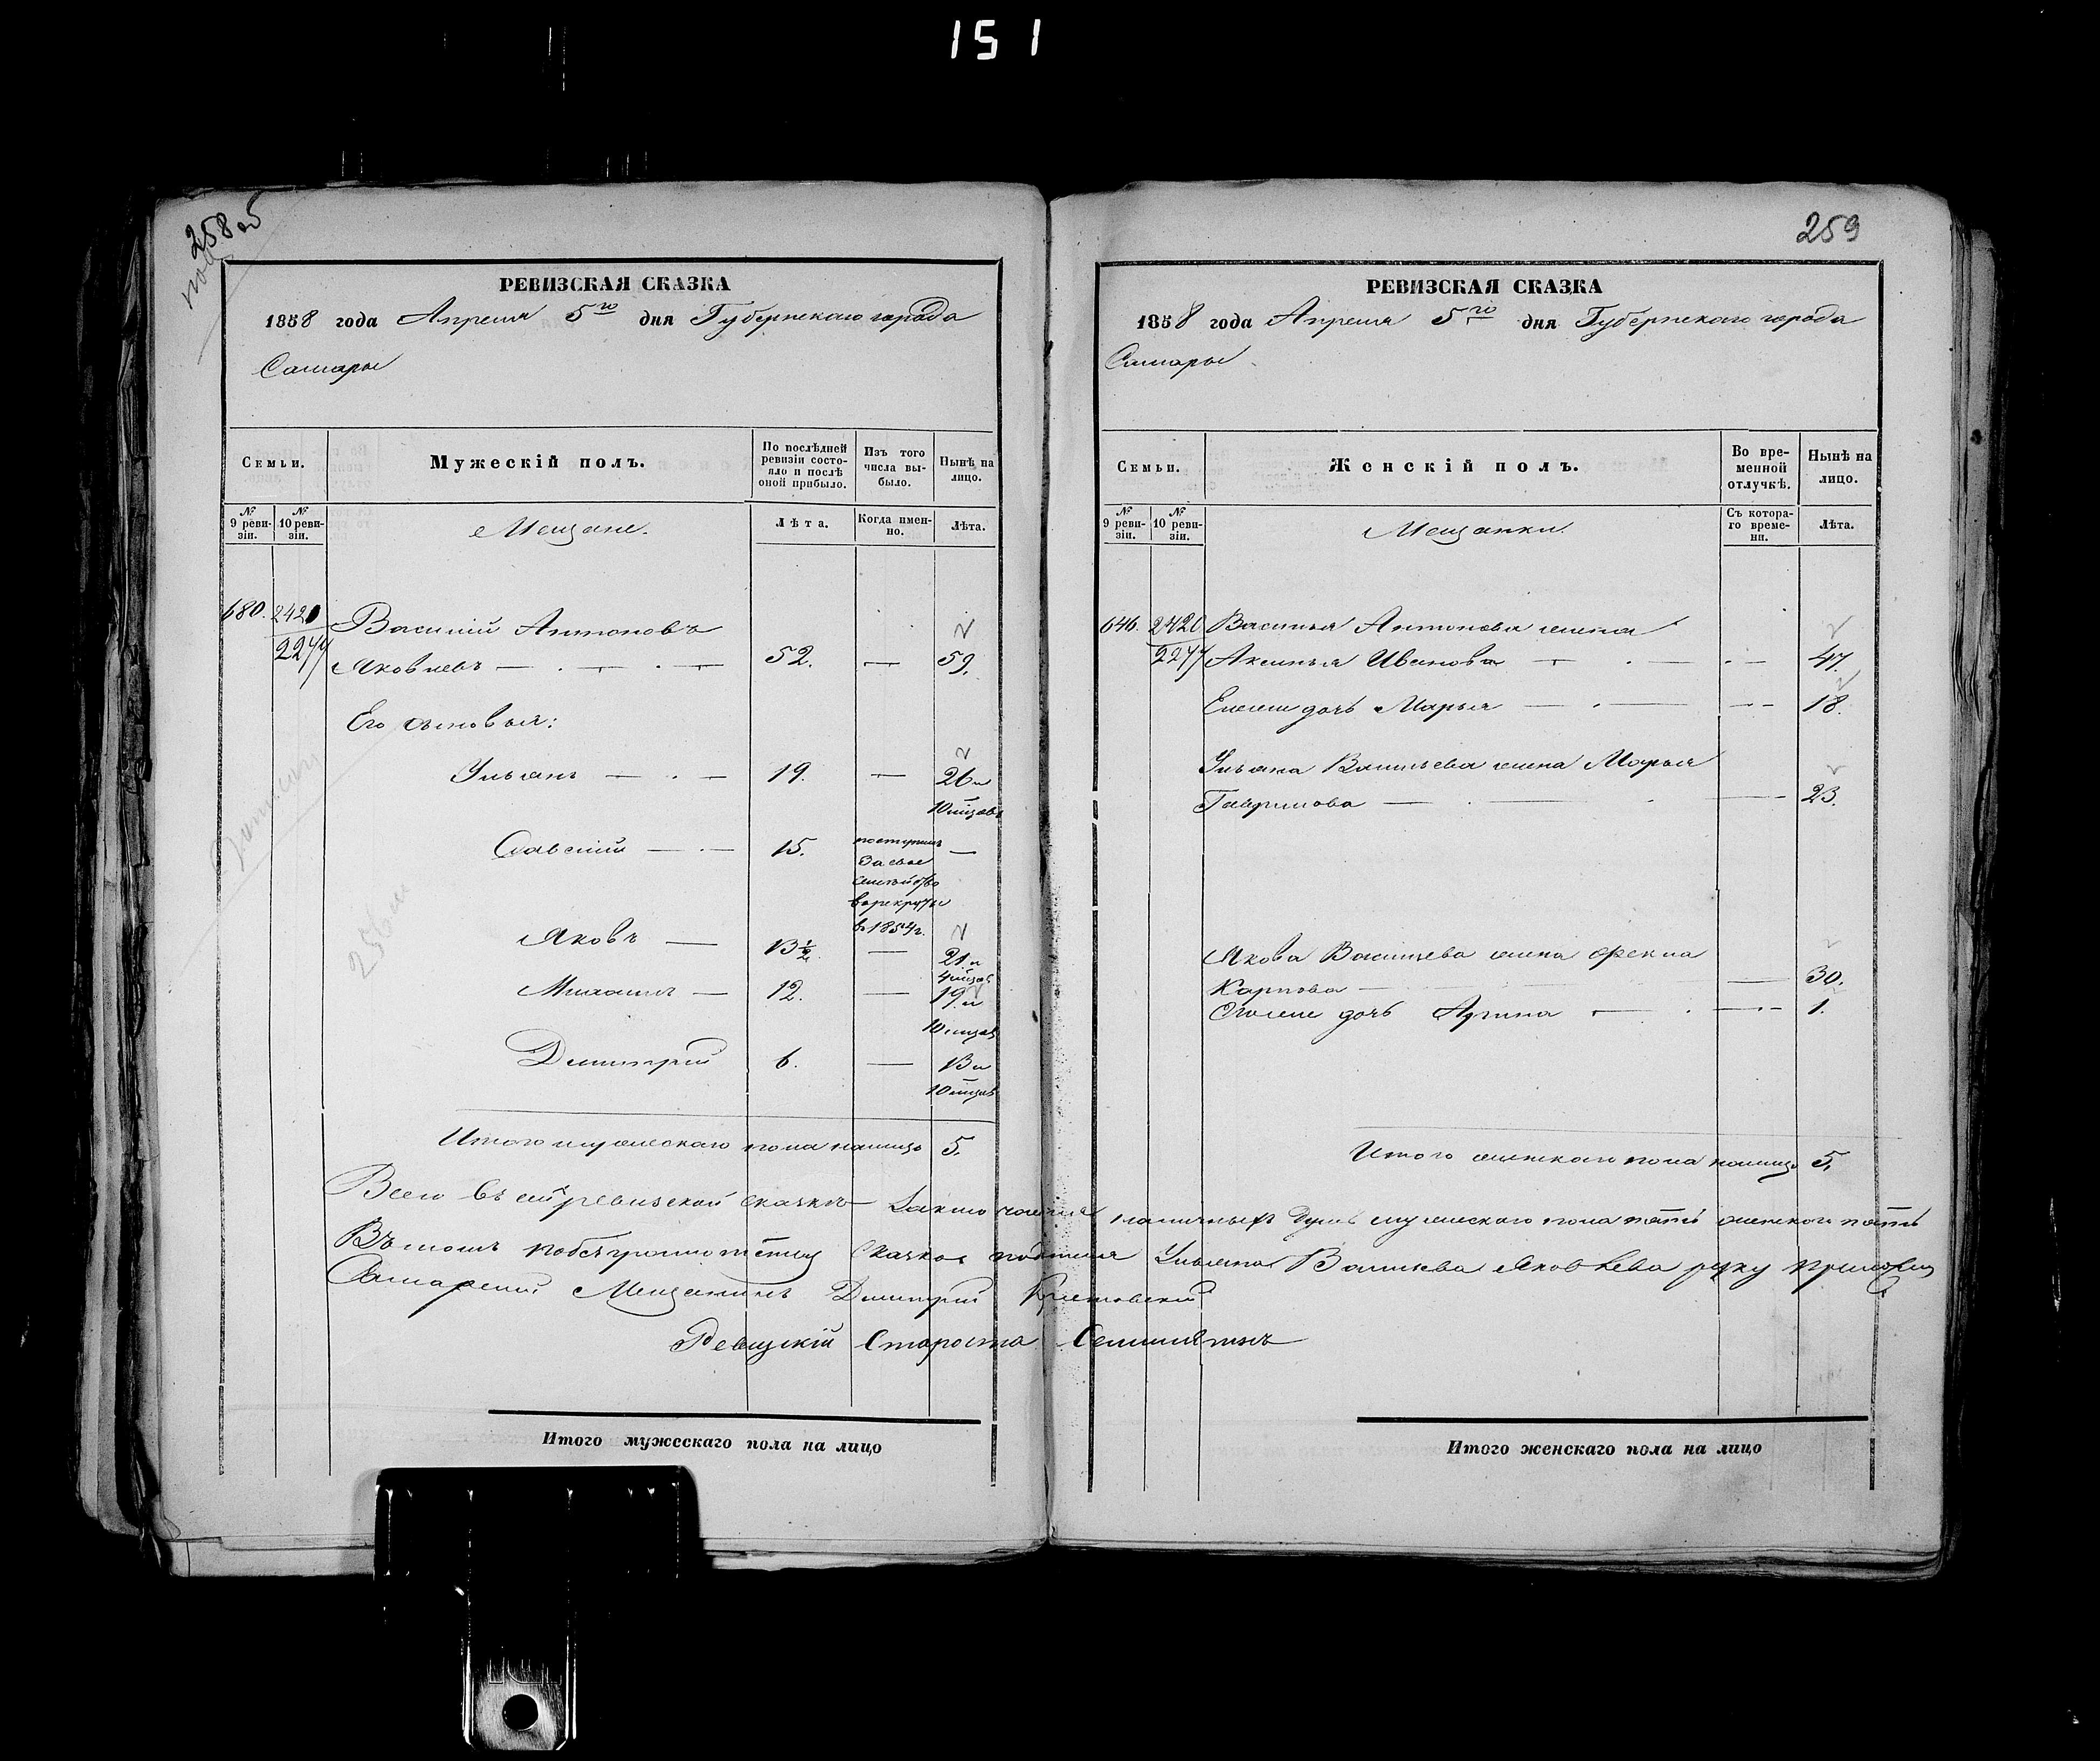 151
258 об
РЕВИЗСКАЯ СКАЗКА
1858 года Апреля 5го дня Губернскаго города
Самары
Семьи.
Мужескій полъ.
По послѣдней ревизіи состояло и послѣ оной прибыло.
Изъ того числа выбыло.
Нынѣ на лицо.
№ 9 ревизіи.
№ 10 ревизіи.
Мещане.
Лѣта.
Когда именно.
Лѣта.
680. 2420 Василий Антоновъ
2277 Яковлевъ — 52. — 59.
Его сыновья:
Ульянъ — 19. — 26 и
10 мѣсяв
Савелий — 15. поступилъ —
за свое
семейство
в рекруты
в 1854 г.
Яковъ — 13½ — 21 и
4 мѣсяв
Михаилъ — 12. — 19 и
10 мѣсяв
Димитрий 6. — 13 и
10 мѣсяв
Итого мужескаго пола налицо 5.
259
РЕВИЗСКАЯ СКАЗКА
1858 года Апреля 5го дня Губернскаго города
Самары
Семьи.
Женскій полъ.
Во временной отлучкѣ.
Нынѣ на лицо.
№ 9 ревизіи.
№ 10 ревизіи.
Мещанки.
Съ котораго времени.
Лѣта.
646. 2420 Василья Антонова жена
2277 Аксинья Иванова — 47.
Ея дочь Марья — 18.
Ульяна Васильева жена Марья
Гаврилова — 23.
Якова Васильева жена Фекла
Карпова — 30.
дочь Арина — 1.
Итого женскаго пола налицо 5.
Всего въ сей ревизской сказкѣ наличныхъ душъ мужескаго пола пять женского пять
Въ томъ сказкѣ Ульяна Васильева Яковлева руку приложилъ
Самарский Мещанинъ Димитрий
Ревизскій Староста
Итого мужескаго пола на лицо
Итого женскаго пола на лицо